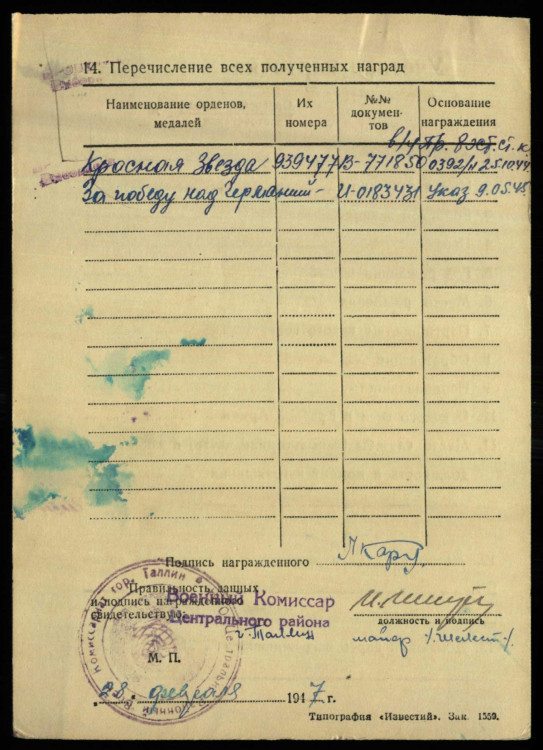 14. Перечисление всех полученных наград
Наименование орденов,
медалей
Их
номера
№№
докумен-
тов
Основание
награждения
в/ч Пр. 8 эст. ст. к.
Красная Звезда 939477 В-771850 0392/н 25.10.44
За победу над Германией - И-0183431 Указ 9.05.45.
Подпись награжденного
Правильность данных
и подпись награжденного
свидетельствую:
Военный Комиссар
Центрального района
г. Таллин
должность и подпись
майор
М. П.
28 февраля 1947 г.
Типография «Известий». Зак. 1559.